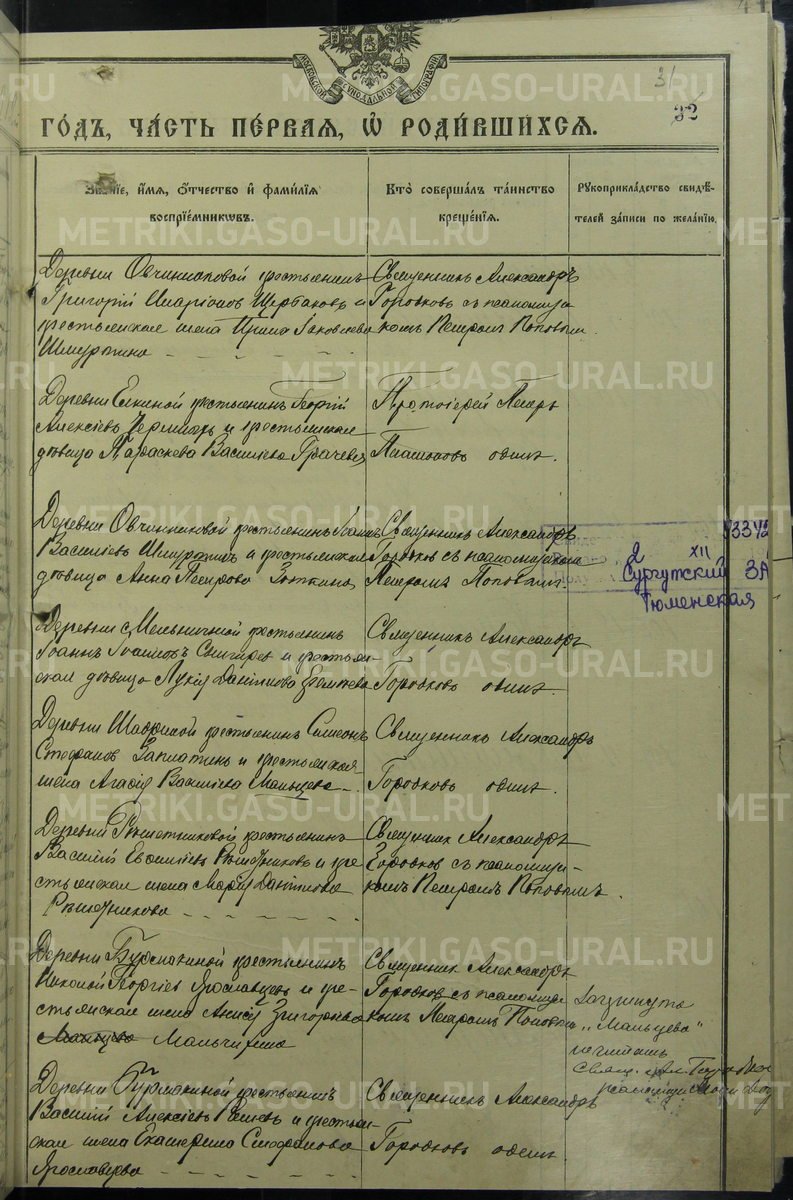 МОСКОВСКОЙ СУНОДАЛЬНОЙ ТИПОГРАФІИ
31
32
ГО́ДЪ, ЧА́СТЬ ПЕ́РВАЯ, Ѡ РОДИ́ВШИХСЯ.
Зва́ніе, и́мя, о́тчество и҆ фами́лія воспріе́мникѡвъ.
Кто̀ соверша́лъ та́инство креще́нія.
Рукоприкла́дство свидѣ́телей за́писи по жела́нію.
Деревни Овчинниковой крестьянинъ
Григорій Иларіоновъ Щербаковъ и
крестьянская жена Ирина Іаковлева
Священникъ Александръ
Городковъ съ псаломщи
комъ Петромъ Поповымъ.
Деревни Елкиной крестьянинъ Георгій
Алексіевъ и крестьянская
дѣвица Параскева Василіева
Протоіерей Петръ
одинъ.
Деревни Овчинниковой крестьянинъ Іоаннъ
Василіевъ и крестьянская
дѣвица Анна Петрова
Священникъ Александръ
Городковъ съ псаломщикомъ
Петромъ Поповымъ.
2 XII
Сургутский ЗА
Тюменская
Деревни Мельничной крестьянинъ
Іоаннъ Іоанновъ Снигиревъ и крестьян-
ская дѣвица Лукія Даніилова
Священникъ Александръ
Городковъ одинъ.
Деревни крестьянинъ Симеонъ
Стефановъ Заплатинъ и крестьянская
жена Агафія Василіева Мальцева
Священникъ Александръ
Городковъ одинъ.
Деревни Рѣшетниковой крестьянинъ
Василій Рѣшетниковъ и кре-
стьянская жена Марія Даніилова
Рѣшетникова
Священникъ Александръ
Городковъ съ псаломщи-
комъ Петромъ Поповымъ.
Деревни Бурмакиной крестьянинъ
Николай Георгіевъ Ярославцевъ и кре-
стьянская жена Анисія Григорьева
Мальцева Мальгина
Священникъ Александръ
Городковъ съ псаломщи
комъ Петромъ Поповымъ
Зачеркнуто
"Мальцева"
не читать
Деревни Бурмакиной крестьянинъ
Василій Алексіевъ и крестьян-
ская жена Екатерина Стефанова
Ярославцева
Священникъ Александръ
Городковъ одинъ.
METRIKI.GASO-URAL.RU